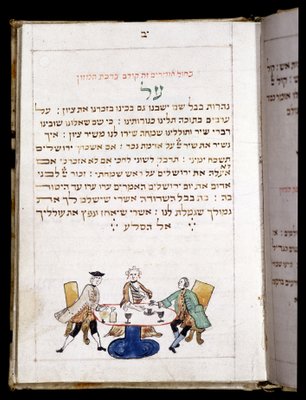 יב
בחול אומרים זה קודם ברכת המזון
על
נהרות בבל שם ישבנו גם בכינו בזכרנו את ציון : על
ערבים בתוכה תלינו כנורותינו : כי שם שאלונו שובינו
דברי שיר ותוללינו שמחה שירו לנו משיר ציון : איך
נשיר את שיר על אדמת נכר : אם אשכחך ירושלים
תשכח ימיני : תדבק לשוני לחכי אם לא אזכרכי אם
אעלה את ירושלים על ראש שמחתי : זכור לבני
אדום את יום ירושלים האמרים ערו ערו עד היסוד
בה : בת בבל השדודה אשרי שישלם לך את
גמולך שגמלת לנו : אשרי שיאחז ונפץ את עולליך
אל הסלע :